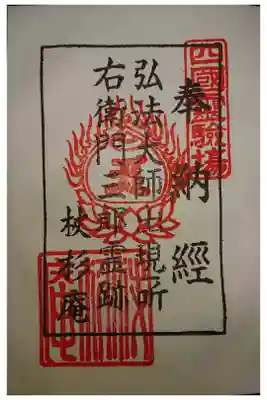 奉納經
四國霊驗場
弘法大師出現所
右衛門三郎霊跡
杖杉庵